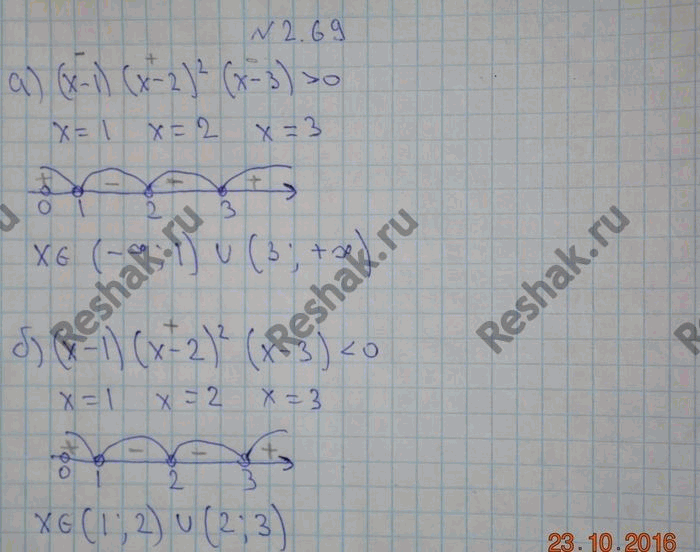 №2.69
- + -
а) (x-1) (x-2)² (x-3) >0
x=1 x=2 x=3
+ - - +
0 1 2 3
x∈ (-∞; 1) ∪ (3; +∞)
+
б) (x-1) (x-2)² (x-3) <0
x=1 x=2 x=3
+ - - +
0 1 2 3
x∈(1; 2) ∪ (2; 3)
Reshak.ru
Reshak.ru
Reshak.ru
23.10.2016